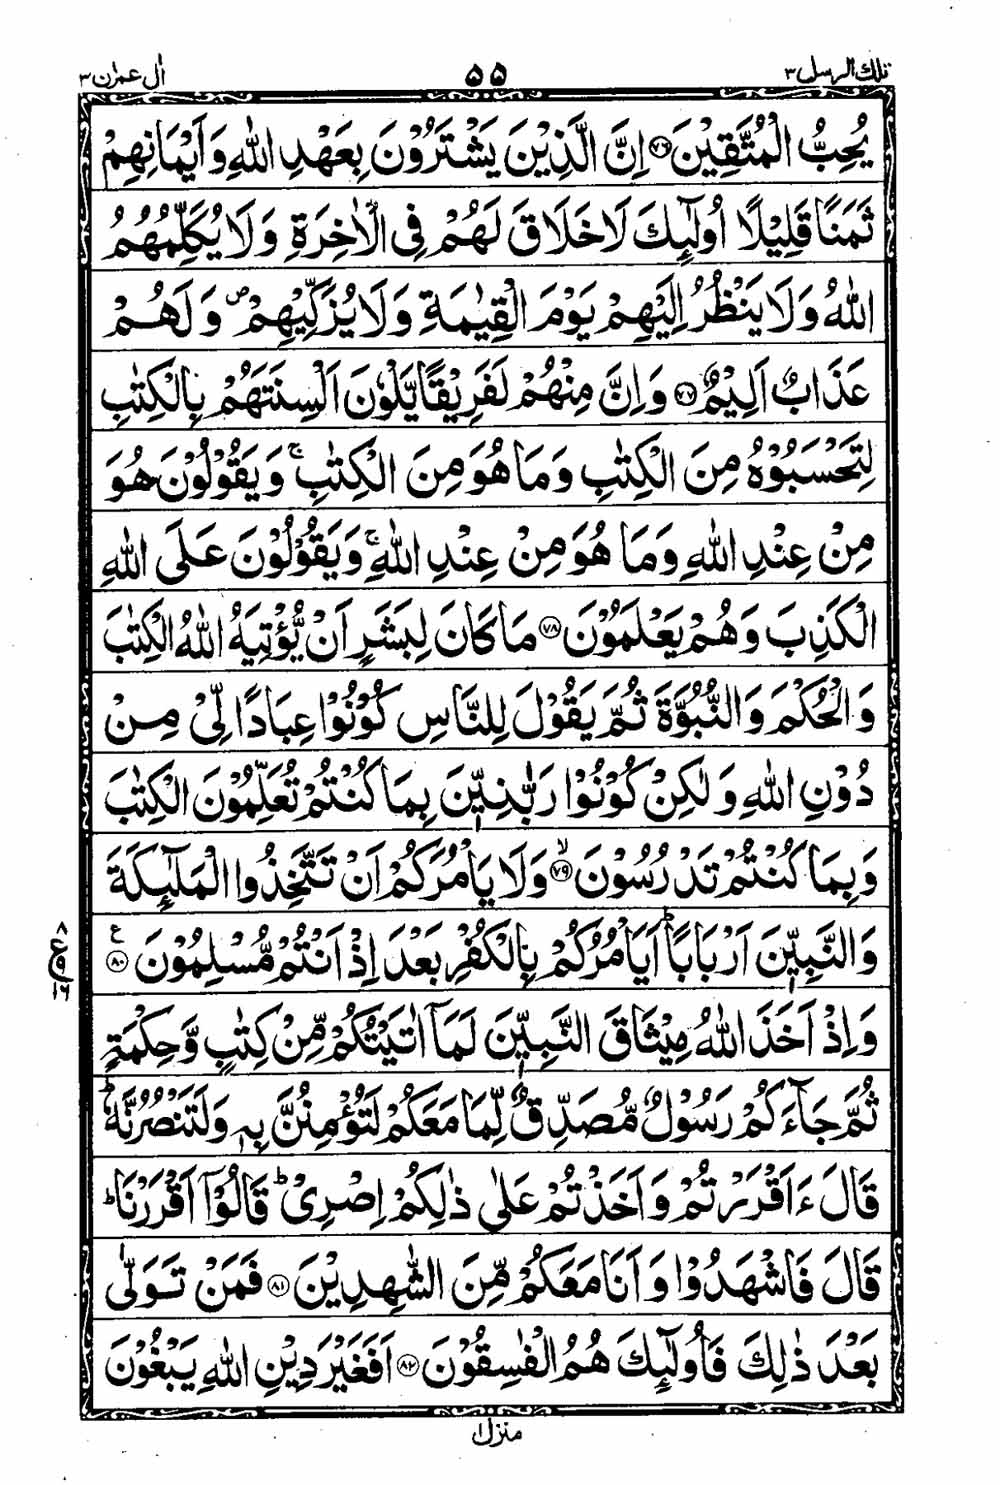 تلك الرسل ٣ ۵۵ اٰل عمرٰن ٣
يُحِبُّ الْمُتَّقِيْنَ ﴿۷۶﴾ اِنَّ الَّذِيْنَ يَشْتَرُوْنَ بِعَهْدِ اللّٰهِ وَاَيْمَانِهِمْ
ثَمَنًا قَلِيْلًا اُولٰٓئِكَ لَا خَلَاقَ لَهُمْ فِي الْاٰخِرَةِ وَلَا يُكَلِّمُهُمُ
اللّٰهُ وَلَا يَنْظُرُ اِلَيْهِمْ يَوْمَ الْقِيٰمَةِ وَلَا يُزَكِّيْهِمْ ۪ وَلَهُمْ
عَذَابٌ اَلِيْمٌ ﴿۷۷﴾ وَاِنَّ مِنْهُمْ لَفَرِيْقًا يَّلْوٗنَ اَلْسِنَتَهُمْ بِالْكِتٰبِ
لِتَحْسَبُوْهُ مِنَ الْكِتٰبِ وَمَا هُوَ مِنَ الْكِتٰبِ ۚ وَيَقُوْلُوْنَ هُوَ
مِنْ عِنْدِ اللّٰهِ وَمَا هُوَ مِنْ عِنْدِ اللّٰهِ ۚ وَيَقُوْلُوْنَ عَلَى اللّٰهِ
الْكَذِبَ وَهُمْ يَعْلَمُوْنَ ﴿۷۸﴾ مَا كَانَ لِبَشَرٍ اَنْ يُّؤْتِيَهُ اللّٰهُ الْكِتٰبَ
وَالْحُكْمَ وَالنُّبُوَّةَ ثُمَّ يَقُوْلَ لِلنَّاسِ كُوْنُوْا عِبَادًا لِّيْ مِنْ
دُوْنِ اللّٰهِ وَلٰكِنْ كُوْنُوْا رَبّٰنِيّٖنَ بِمَا كُنْتُمْ تُعَلِّمُوْنَ الْكِتٰبَ
وَبِمَا كُنْتُمْ تَدْرُسُوْنَ ﴿۷۹﴾ ۙ وَلَا يَاْمُرَكُمْ اَنْ تَتَّخِذُوا الْمَلٰٓئِكَةَ
وَالنَّبِيّٖنَ اَرْبَابًا ؕ اَيَاْمُرُكُمْ بِالْكُفْرِ بَعْدَ اِذْ اَنْتُمْ مُّسْلِمُوْنَ ﴿۸۰﴾ ع
۸ ع ۹ ۱۶
وَاِذْ اَخَذَ اللّٰهُ مِيْثَاقَ النَّبِيّٖنَ لَمَآ اٰتَيْتُكُمْ مِّنْ كِتٰبٍ وَّحِكْمَةٍ
ثُمَّ جَآءَكُمْ رَسُوْلٌ مُّصَدِّقٌ لِّمَا مَعَكُمْ لَتُؤْمِنُنَّ بِهٖ وَلَتَنْصُرُنَّهٗ ؕ
قَالَ ءَاَقْرَرْتُمْ وَاَخَذْتُمْ عَلٰى ذٰلِكُمْ اِصْرِيْ ؕ قَالُوْٓا اَقْرَرْنَا ؕ
قَالَ فَاشْهَدُوْا وَاَنَا مَعَكُمْ مِّنَ الشّٰهِدِيْنَ ﴿۸۱﴾ فَمَنْ تَوَلّٰى
بَعْدَ ذٰلِكَ فَاُولٰٓئِكَ هُمُ الْفٰسِقُوْنَ ﴿۸۲﴾ اَفَغَيْرَ دِيْنِ اللّٰهِ يَبْغُوْنَ
منزل ۱